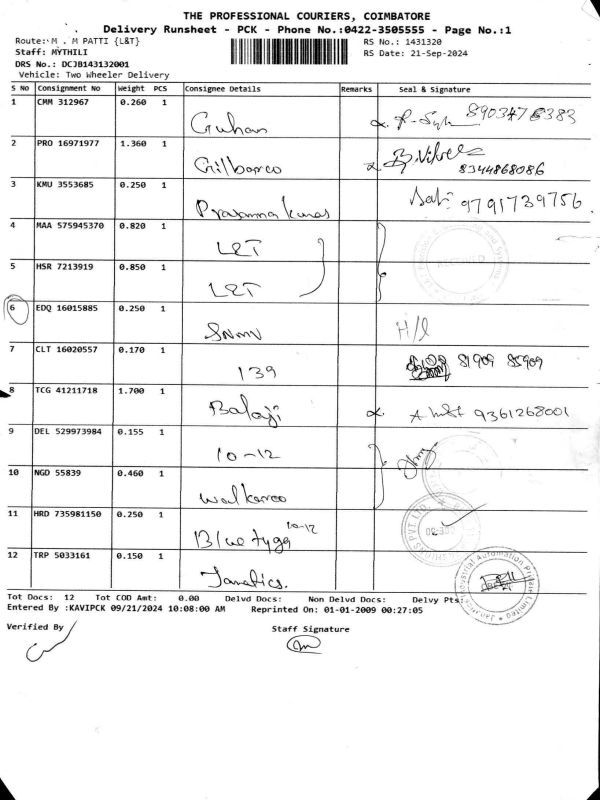 THE PROFESSIONAL COURIERS, COIMBATORE
Delivery Runsheet - PCK - Phone No.:0422-3505555 - Page No.:1
Route: M . M PATTI {L&T} RS No.: 1431320
Staff: MYTHILI RS Date: 21-Sep-2024
DRS No.: DCJB143132001
Vehicle: Two Wheeler Delivery
S No Consignment No Weight PCS Consignee Details Remarks Seal & Signature
1 CMM 312967 0.260 1 Guhan
2 PRO 16971977 1.360 1 Gilbarco 8344868086
3 KMU 3553685 0.250 1 Prasanna kumar 9791739756
4 MAA 575945370 0.820 1 L&T
5 HSR 7213919 0.850 1 L&T
6 EDQ 16015885 0.250 1 SNMV H/l
7 CLT 16020557 0.170 1 139 81909 85909
8 TCG 41211718 1.700 1 Balaji 9361268001
9 DEL 529973984 0.155 1 10-12
10 NGD 55839 0.460 1 walkaroo
11 HRD 735981150 0.250 1 Blue tyga 10-12
12 TRP 5033161 0.150 1 Janatics.
Tot Docs: 12 Tot COD Amt: 0.00 Delvd Docs: Non Delvd Docs: Delvy Pts:
Entered By :KAVIPCK 09/21/2024 10:08:00 AM Reprinted On: 01-01-2009 00:27:05
Verified By Staff Signature